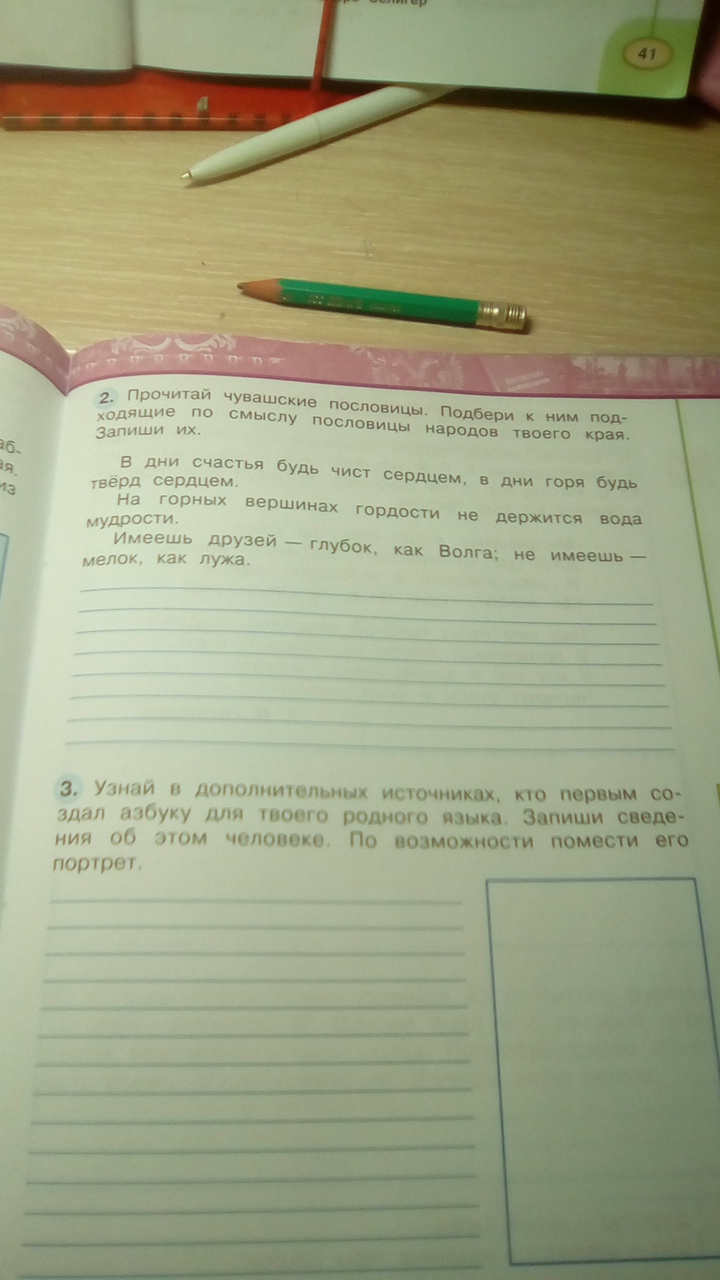 41
2. Прочитай чувашские пословицы. Подбери к ним под-
ходящие по смыслу пословицы народов твоего края.
Запиши их.
В дни счастья будь чист сердцем, в дни горя будь
твёрд сердцем.
На горных вершинах гордости не держится вода
мудрости.
Имеешь друзей — глубок, как Волга; не имеешь —
мелок, как лужа.
3. Узнай в дополнительных источниках, кто первым со-
здал азбуку для твоего родного языка. Запиши сведе-
ния об этом человеке. По возможности помести его
портрет.